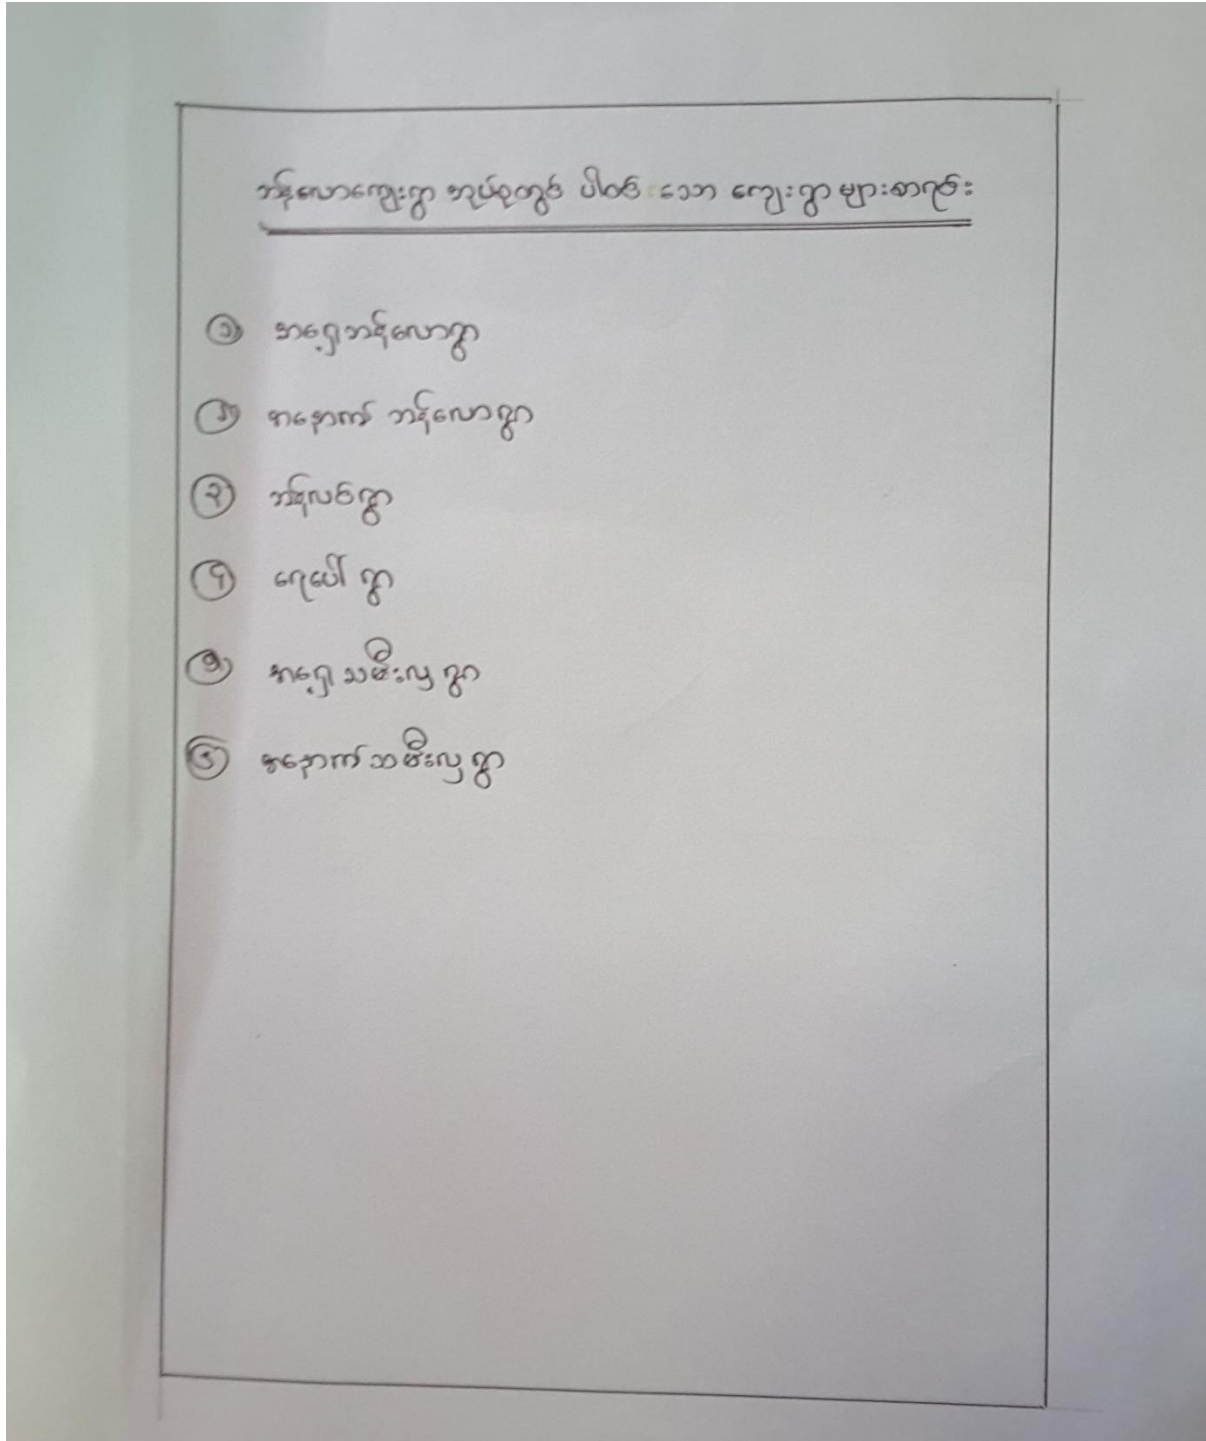 ဘန့်လောကျေးရွာ အုပ်စုတွင် ပါဝင်သော ကျေးရွာများစာရင်း
၁ အရှေ့ဘန့်လောရွာ
၂ အနောက် ဘန့်လောရွာ
၃ ဘန့်လင်ရွာ
၄ ရေပေါ် ရွာ
၅ အရှေ့ သမီးလှ ရွာ
၆ အနောက် သမီးလှ ရွာ